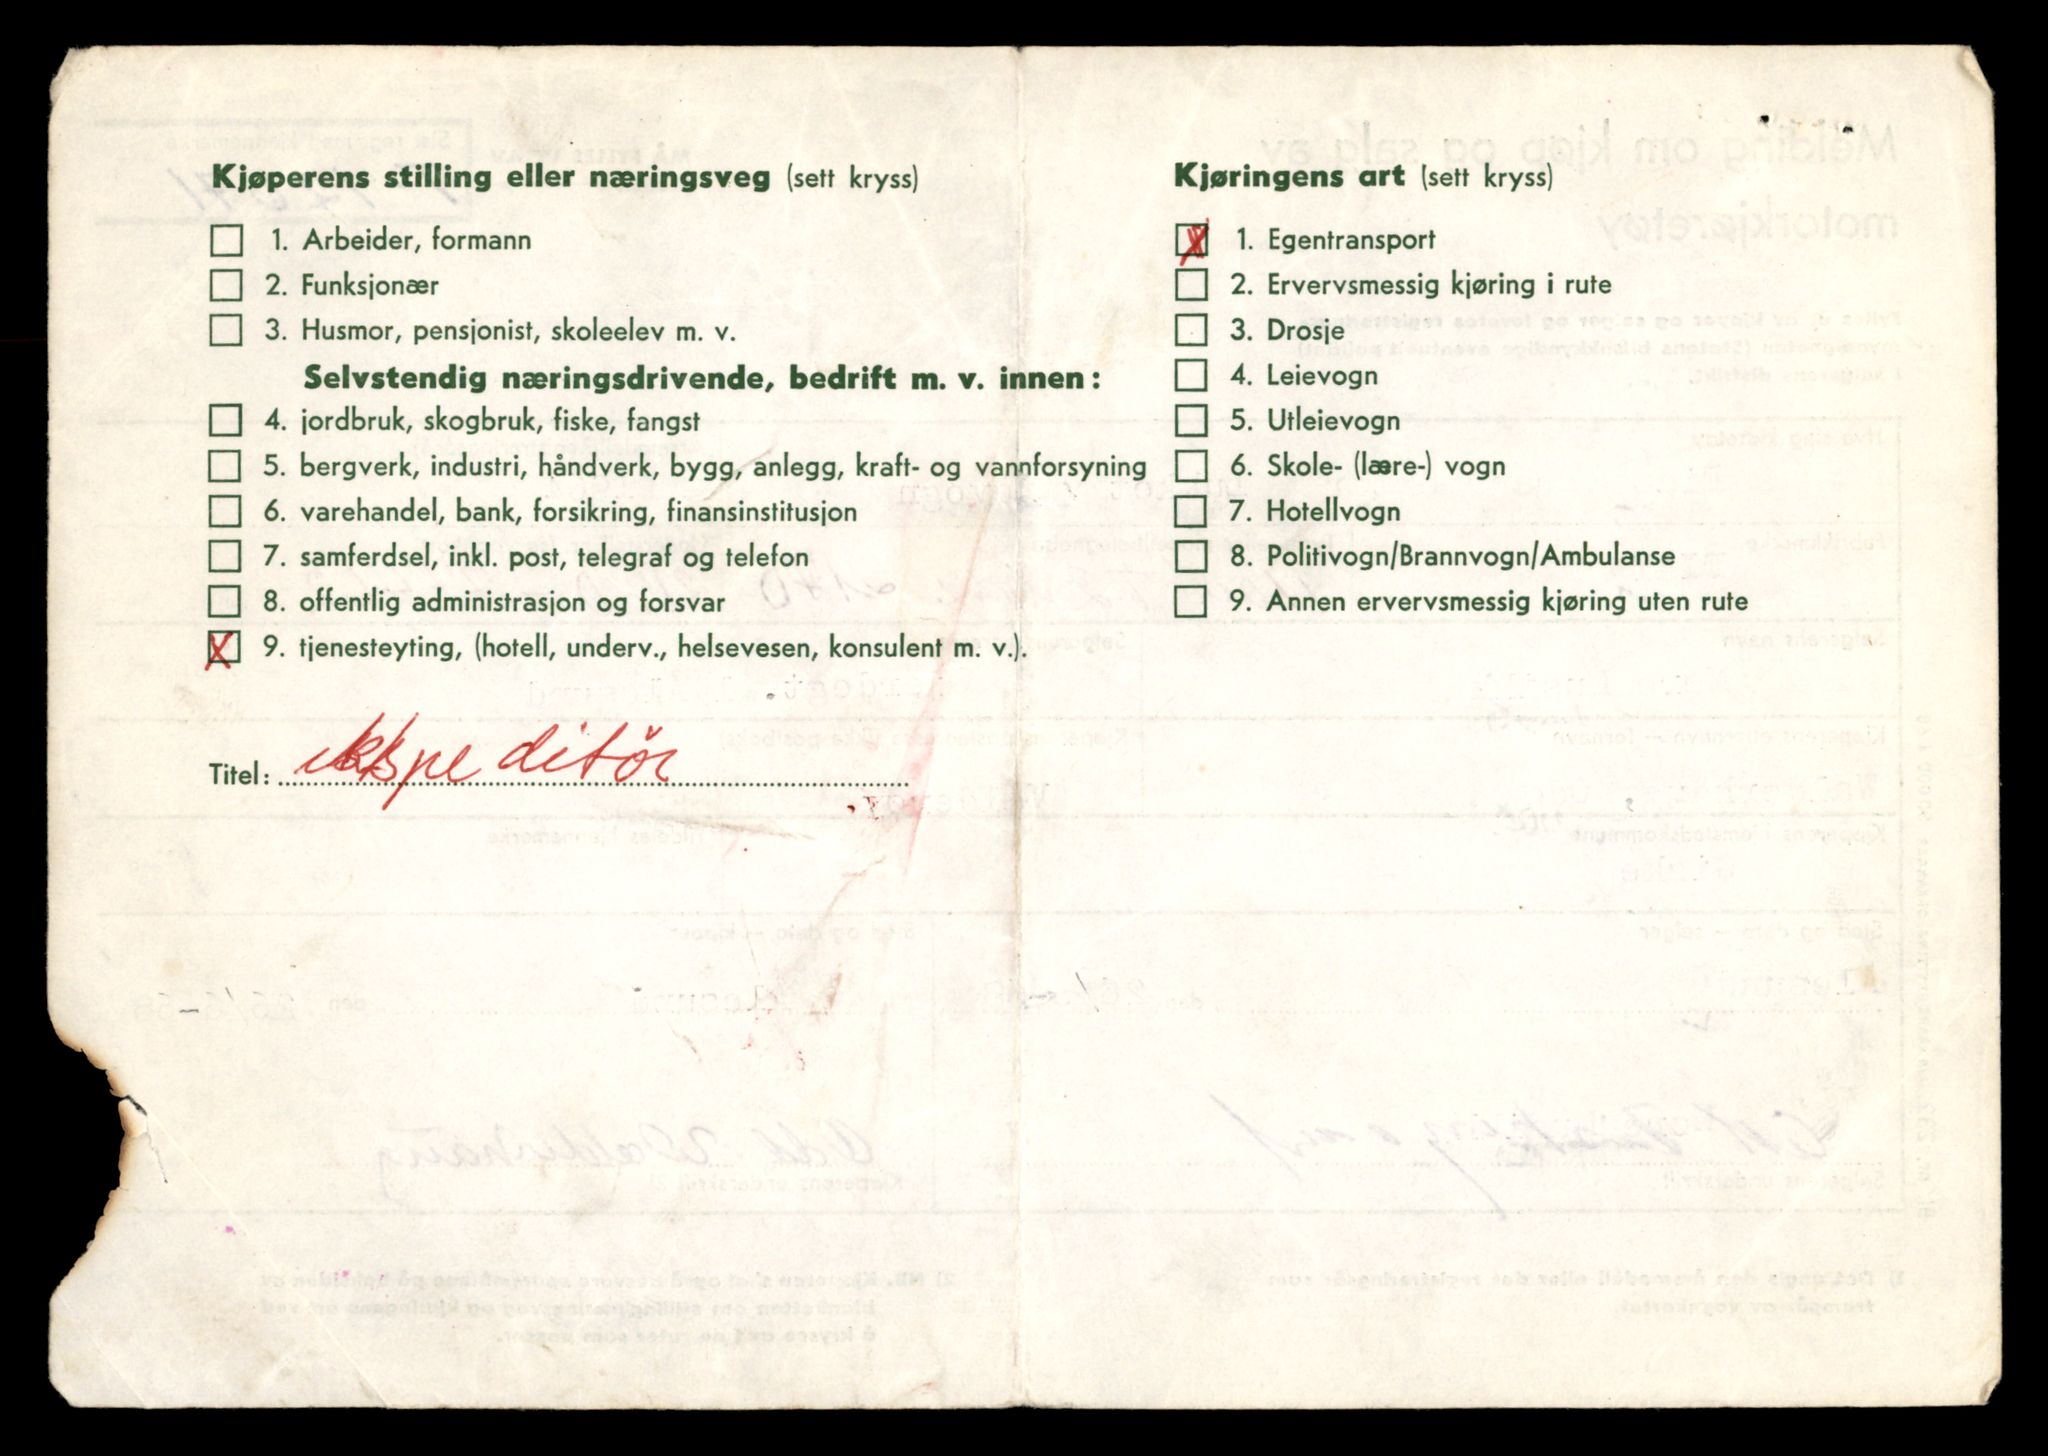 Kjøperens stilling eller næringsveg (sett kryss)
1. Arbeider, formann
2. Funksjonær
3. Husmor, pensjonist, skoleelev m. v.
Selvstendig næringsdrivende, bedrift m. v. innen:
4. jordbruk, skogbruk, fiske, fangst
5. bergverk, industri, håndverk, bygg, anlegg, kraft- og vannforsyning
6. varehandel, bank, forsikring, finansinstitusjon
7. samferdsel, inkl. post, telegraf og telefon
8. offentlig administrasjon og forsvar
X 9. tjenesteyting, (hotell, underv., helsevesen, konsulent m. v.).
Titel: ekspeditør
Kjøringens art (sett kryss)
X 1. Egentransport
2. Ervervsmessig kjøring i rute
3. Drosje
4. Leievogn
5. Utleievogn
6. Skole- (lære-) vogn
7. Hotellvogn
8. Politivogn/Brannvogn/Ambulanse
9. Annen ervervsmessig kjøring uten rute